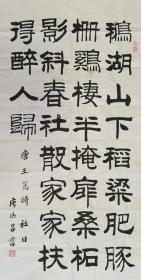 鵝湖山下稻粱肥豚
栅鷄棲半掩扉桑柘
影斜春社散家家扶
得醉人歸
唐王駕詩社日